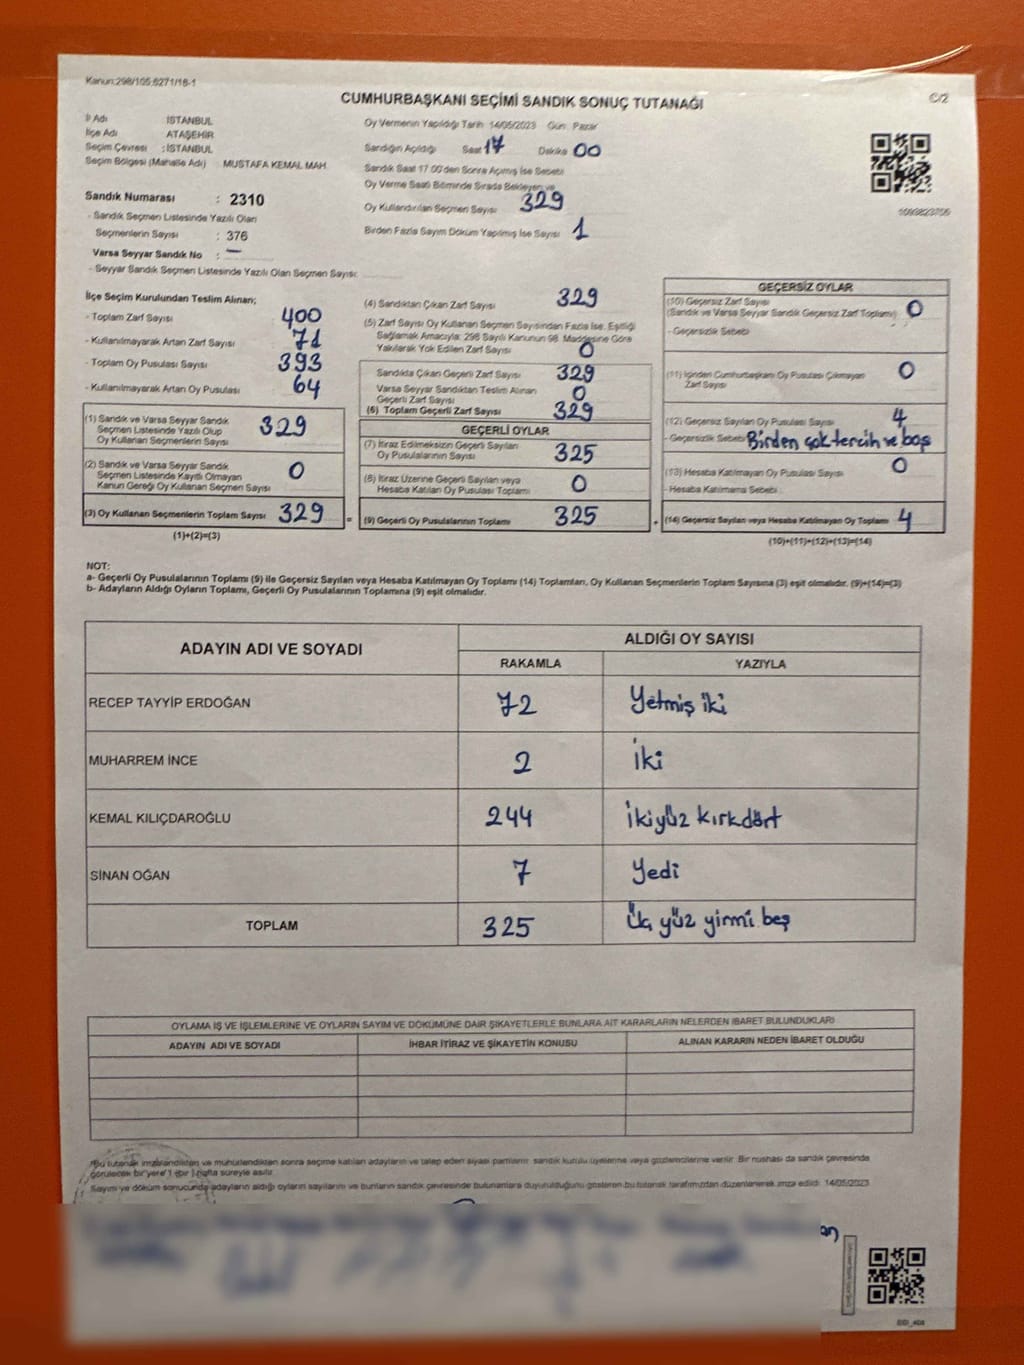 Kanun:298/105;6271/18-1
CUMHURBAŞKANI SEÇİMİ SANDIK SONUÇ TUTANAĞI
C/2
İl Adı İSTANBUL
İlçe Adı ATAŞEHİR
Seçim Çevresi : İSTANBUL
Seçim Bölgesi (Mahalle Adı) MUSTAFA KEMAL MAH.
Sandık Numarası : 2310
- Sandık Seçmen Listesinde Yazılı Olan
Seçmenlerin Sayısı : 376
Varsa Seyyar Sandık No : —
- Seyyar Sandık Seçmen Listesinde Yazılı Olan Seçmen Sayısı:
Oy Vermenin Yapıldığı Tarih 14/05/2023 Gün: Pazar
Sandığın Açıldığı Saat 17 Dakika 00
Sandık Saat 17:00'den Sonra Açılmış İse Sebebi
Oy Verme Saati Bitiminde Sırada Bekleyen ve
Oy Kullandırılan Seçmen Sayısı 329
Birden Fazla Sayım Döküm Yapılmış İse Sayısı 1
İlçe Seçim Kurulundan Teslim Alınan;
- Toplam Zarf Sayısı 400
- Kullanılmayarak Artan Zarf Sayısı 71
- Toplam Oy Pusulası Sayısı 393
- Kullanılmayarak Artan Oy Pusulası 64
(1) Sandık ve Varsa Seyyar Sandık
Seçmen Listesinde Yazılı Olup
Oy Kullanan Seçmenlerin Sayısı 329
(2) Sandık ve Varsa Seyyar Sandık
Seçmen Listesinde Kayıtlı Olmayan
Kanun Gereği Oy Kullanan Seçmen Sayısı 0
(3) Oy Kullanan Seçmenlerin Toplam Sayısı 329
(1)+(2)=(3)
(4) Sandıktan Çıkan Zarf Sayısı 329
(5) Zarf Sayısı Oy Kullanan Seçmen Sayısından Fazla İse, Eşitliği
Sağlamak Amacıyla; 298 Sayılı Kanunun 98. Maddesine Göre
Yakılarak Yok Edilen Zarf Sayısı 0
Sandıkta Çıkan Geçerli Zarf Sayısı 329
Varsa Seyyar Sandıktan Teslim Alınan
Geçerli Zarf Sayısı 0
(6) Toplam Geçerli Zarf Sayısı 329
GEÇERLİ OYLAR
(7) İtiraz Edilmeksizin Geçerli Sayılan
Oy Pusulalarının Sayısı 325
(8) İtiraz Üzerine Geçerli Sayılan veya
Hesaba Katılan Oy Pusulası Toplamı 0
= (9) Geçerli Oy Pusulalarının Toplamı 325
GEÇERSİZ OYLAR
(10) Geçersiz Zarf Sayısı
(Sandık ve Varsa Seyyar Sandık Geçersiz Zarf Toplamı) 0
- Geçersizlik Sebebi
(11) İçinden Cumhurbaşkanı Oy Pusulası Çıkmayan
Zarf Sayısı 0
(12) Geçersiz Sayılan Oy Pusulası Sayısı 4
- Geçersizlik Sebebi Birden çok tercih ve boş
(13) Hesaba Katılmayan Oy Pusulası Sayısı 0
- Hesaba Katılmama Sebebi
+ (14) Geçersiz Sayılan veya Hesaba Katılmayan Oy Toplamı 4
(10)+(11)+(12)+(13)=(14)
NOT:
a- Geçerli Oy Pusulalarının Toplamı (9) ile Geçersiz Sayılan veya Hesaba Katılmayan Oy Toplamı (14) Toplamları, Oy Kullanan Seçmenlerin Toplam Sayısına (3) eşit olmalıdır. (9)+(14)=(3)
b- Adayların Aldığı Oyların Toplamı, Geçerli Oy Pusulalarının Toplamına (9) eşit olmalıdır.
ADAYIN ADI VE SOYADI ALDIĞI OY SAYISI
RAKAMLA YAZIYLA
RECEP TAYYİP ERDOĞAN 72 Yetmiş iki
MUHARREM İNCE 2 İki
KEMAL KILIÇDAROĞLU 244 İkiyüz kırkdört
SİNAN OĞAN 7 Yedi
TOPLAM 325 Üç yüz yirmi beş
OYLAMA İŞ VE İŞLEMLERİNE VE OYLARIN SAYIM VE DÖKÜMÜNE DAİR ŞİKAYETLERLE BUNLARA AİT KARARLARIN NELERDEN İBARET BULUNDUKLARI
ADAYIN ADI VE SOYADI İHBAR İTİRAZ VE ŞİKAYETİN KONUSU ALINAN KARARIN NEDEN İBARET OLDUĞU
İşbu tutanak imzalandıktan ve mühürlendikten sonra seçime katılan adayların ve talep eden siyasi partilerin sandık kurulu üyelerine veya gözlemcilerine verilir. Bir nüshası da sandık çevresinde
görülecek bir yere 1 (bir) hafta süreyle asılır.
Sayım ve döküm sonucunda adayların aldığı oyların sayılarını ve bunların sandık çevresinde bulunanlara duyurulduğunu gösteren bu tutanak tarafımızdan düzenlenerek imza edildi. 14/05/2023